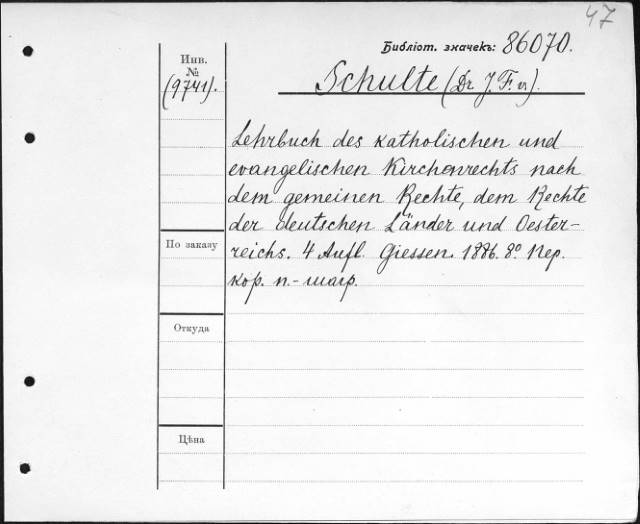 47
Библіот. значекъ: 86070.
Инв.
№
(9741).
Schulte (Dr. J. F. v).
Lehrbuch des katholischen und
evangelischen Kirchenrechts nach
dem gemeinen Rechte, dem Rechte
der deutschen Länder und Oester-
reichs. 4 Aufl. Giessen. 1886. 8° Пер.
кор. п.-шагр.
По заказу
Откуда
Цѣна